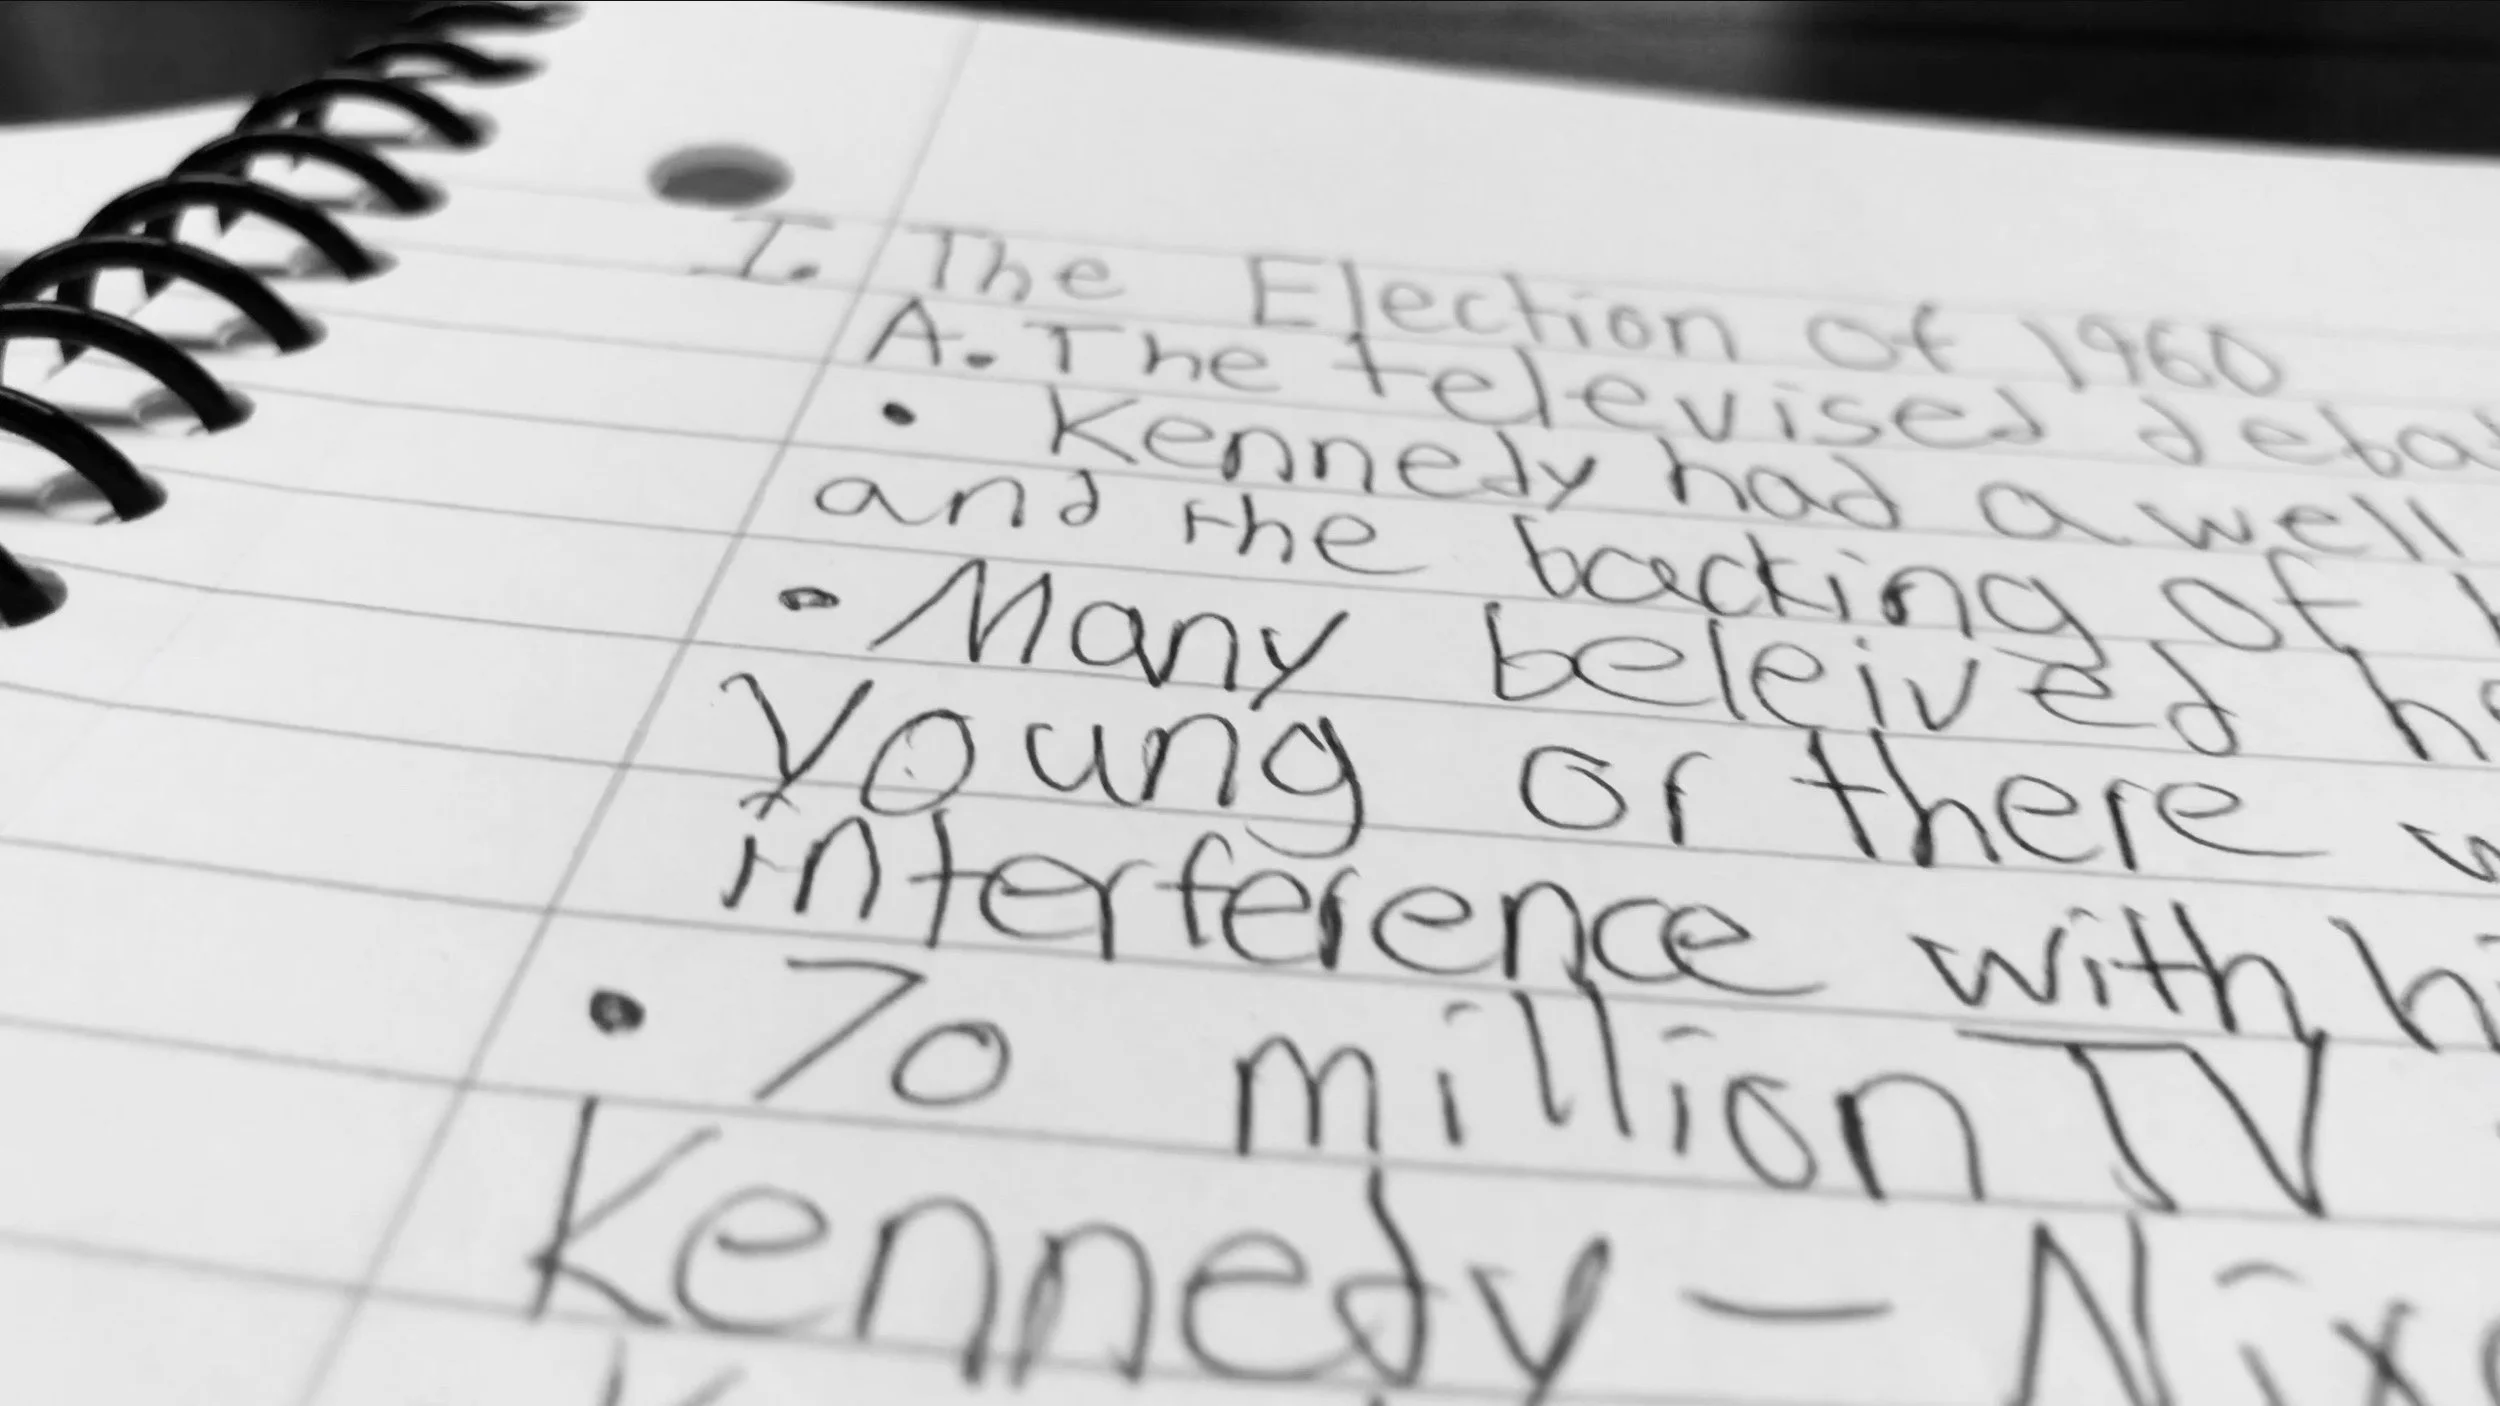 I. The Election of 1960
A. The televised
• Kennedy had a well
and the backing of
• Many beleived
Young or there
interference with
• 70 million TV
Kennedy –